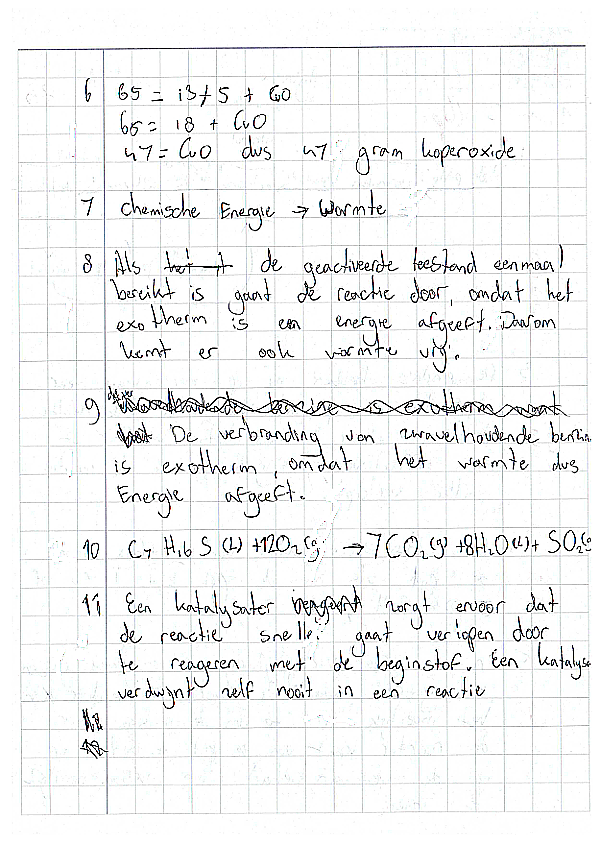 6 65 = 13+5 + CuO
65 = 18 + CuO
47 = CuO dus 47 gram koperoxide
7 chemische Energie → Warmte
8 Als het t de geactiveerde toestand eenmaal
bereikt is gaat de reactie door, omdat het
exotherm is en energie afgeeft. Daarom
komt er ook warmte vrij.
9
De verbranding van zwavelhoudende benzin
is exotherm, omdat het warmte dus
Energie afgeeft.
10 C7 H16 S (l) +12O2(g) → 7CO2(g) +8H2O(l) + SO2(g
11 Een katalysator zorgt ervoor dat
de reactie sneller gaat verlopen door
te reageren met de beginstof. Een katalysa
verdwijnt zelf nooit in een reactie